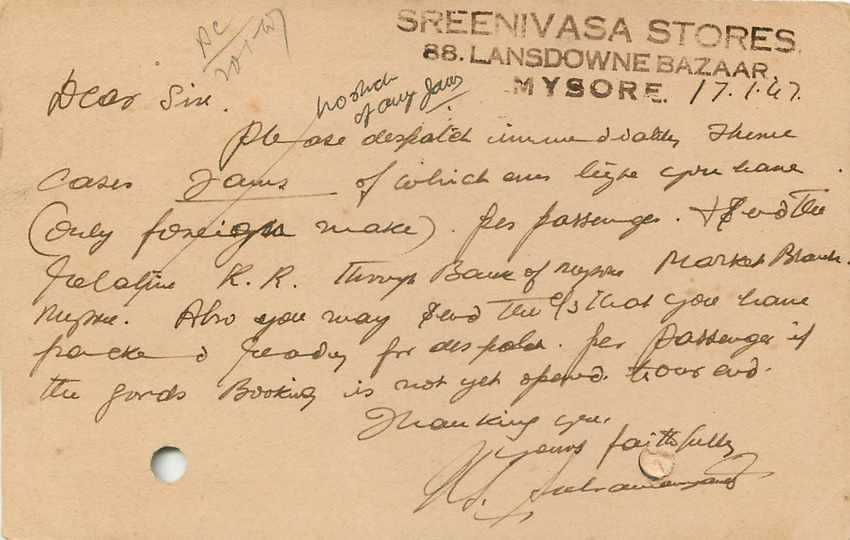 SREENIVASA STORES.
88. LANSDOWNE BAZAAR,
MYSORE. 17.1.47.
Ac
20/1/47
Dear Sir.
no stock
of any Jams
Please despatch immediately three
cases Jams of which ever type you have
(only foreign make). per passenger. & send the
relative R.R. through Bank of Mysore Market Branch.
Mysore. Also you may send the c/s that you have
packed ready for despatch. per passenger if
the goods Booking is not yet opend. your end.
Thanking you.
yours faithfully